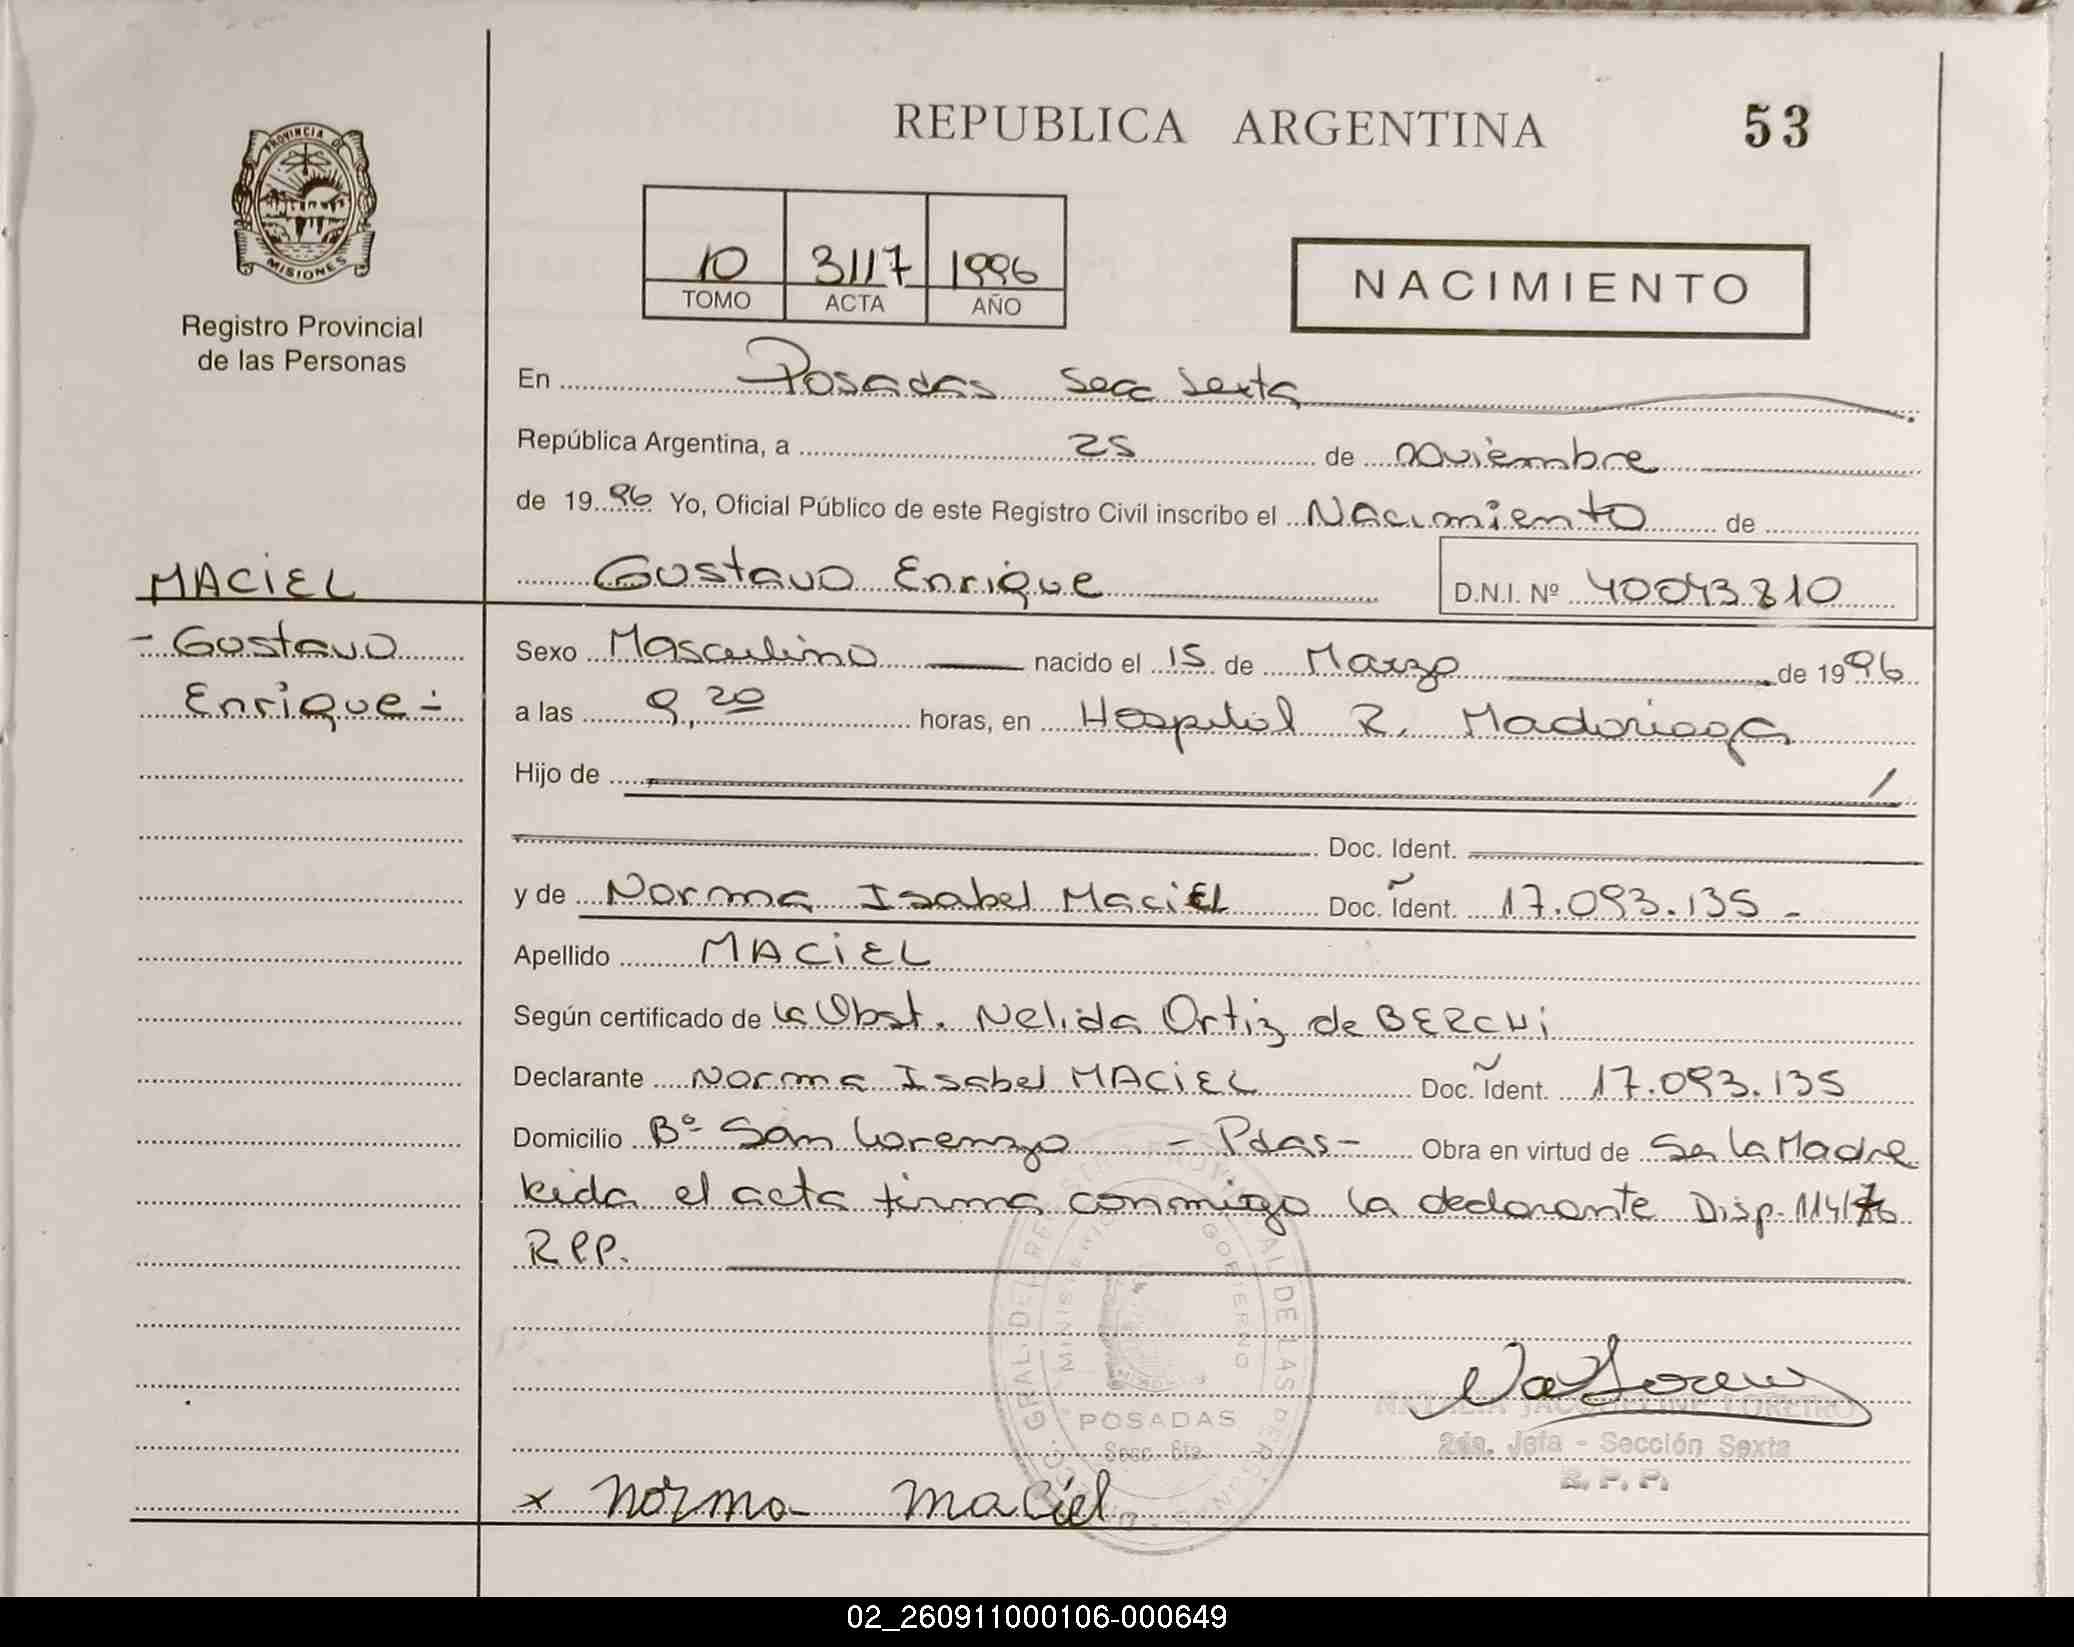 REPUBLICA ARGENTINA
53
PROVINCIA DE MISIONES
Registro Provincial
de las Personas
10 3117 1996
TOMO ACTA AÑO
NACIMIENTO
En Posadas Secc Sexta
República Argentina, a 25 de noviembre
de 1996 Yo, Oficial Público de este Registro Civil inscribo el Nacimiento de
Gustavo Enrique D.N.I. Nº 40043810
MACIEL
- Gustavo
Enrique -
Sexo Masculino nacido el 15 de Marzo de 1996
a las 9,20 horas, en Hospital R. Madariaga
Hijo de
Doc. Ident.
y de Norma Isabel MaciEL Doc. Ident. 17.093.135 -
Apellido MACIEL
Según certificado de la Obst. Nelida Ortiz de BERCHI
Declarante Norma Isabel MACIEL Doc. Ident. 17.093.135
Domicilio Bº San Lorenzo - Pdas - Obra en virtud de Ser la Madre
leida el acta firma conmigo la declarante Disp. 114/76
RPP.
POSADAS
Secc. 6ta.
MINISTERIO GOBIERNO
NATALIA JACQUELINE LOREIRO
2da. Jefa - Sección Sexta
R. P. P.
x Norma Maciel
02_260911000106-000649